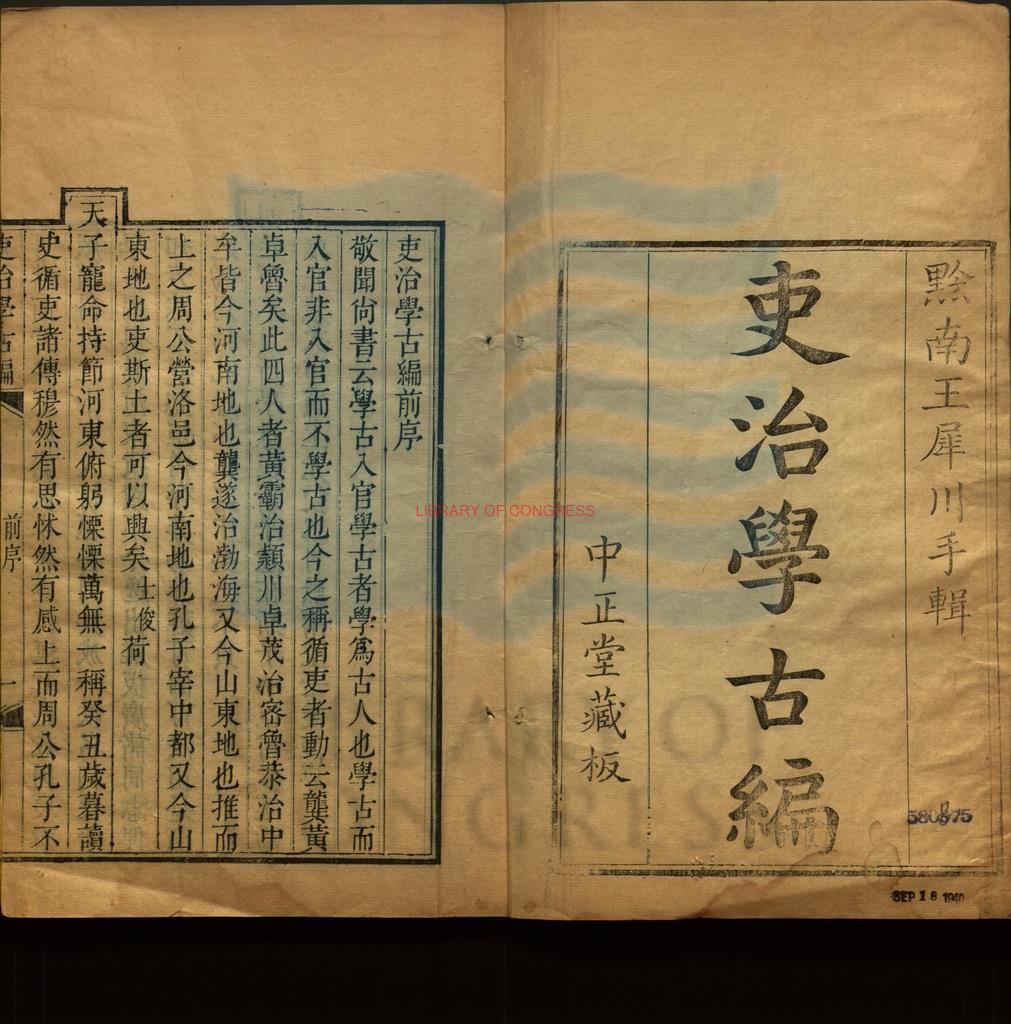 黔南王犀川手輯
吏治學古編
中正堂藏板
580875
SEP 18 1940
LIBRARY OF CONGRESS
吏治學古編前序
敬聞尙書云學古入官學古者學爲古人也學古而
入官非入官而不學古也今之稱循吏者動云龔黃
卓魯矣此四人者黃霸治穎川卓茂治密魯恭治中
牟皆今河南地也龔遂治渤海又今山東地也推而
上之周公營洛邑今河南地也孔子宰中都又今山
東地也吏斯土者可以興矣士俊荷
天子寵命持節河東俯躬慄慄萬無一稱癸丑歲暮讀
史循吏諸傳穆然有思怵然有感上而周公孔子不
吏治學古編 前序 一